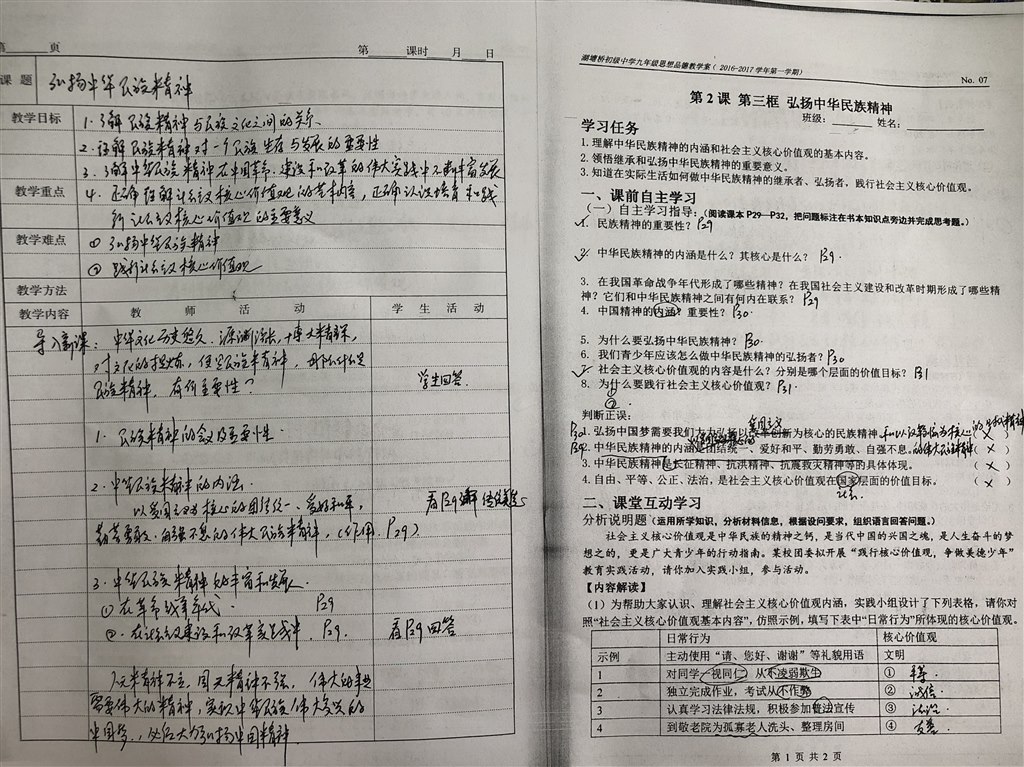 第 页
第 课时 月 日
课题 弘扬中华民族精神
教学目标 1.了解民族精神与民族文化之间的关系.
2.理解民族精神对一个民族生存与发展的重要性
3.了解中华民族精神在中国革命、建设和改革的伟大实践中不断丰富发展
教学重点 4.正确理解社会主义核心价值观的基本内容,正确认识培育和践
行社会主义核心价值观的重要意义
教学难点 ① 弘扬中华民族精神
② 践行社会主义核心价值观
教学方法
教学内容 教 师 活 动 学 生 活 动
导入新课: 中华文化历史悠久、源渊流长,博大精深,
对文化的提炼,便是民族精神,那什么是
民族精神,有何重要性? 学生回答.
1. 民族精神的含义及重要性.
2. 中华民族精神的内涵.
以爱国主义为核心的团结统一、爱好和平、 看P29
勤劳勇敢、自强不息的伟大民族精神,(作用.P29)
3. 中华民族精神的丰富和发展.
① 在革命战争年代. P29
②.在社会主义建设和改革实践中. P29. 看P29回答
人无精神不立,国无精神不强,伟大的事业
需要伟大的精神,实现中华民族伟大复兴的
中国梦,必须大力弘扬中国精神.
湖塘桥初级中学九年级思想品德教学案(2016-2017学年第一学期)
No. 07
第2课 第三框 弘扬中华民族精神
班级: 姓名:
学习任务
1. 理解中华民族精神的内涵和社会主义核心价值观的基本内容。
2. 领悟继承和弘扬中华民族精神的重要意义。
3. 知道在实际生活如何做中华民族精神的继承者、弘扬者,践行社会主义核心价值观。
一、课前自主学习
(一)自主学习指导:(阅读课本P29—P32,把问题标注在书本知识点旁边并完成思考题。)
1. 民族精神的重要性? P29
2. 中华民族精神的内涵是什么?其核心是什么? P29.
3. 在我国革命战争年代形成了哪些精神?在我国社会主义建设和改革时期形成了哪些精
神?它们和中华民族精神之间有何内在联系? P29
4. 中国精神的内涵?重要性? P30.
5. 为什么要弘扬中华民族精神? P30.
6. 我们青少年应该怎么做中华民族精神的弘扬者? P30
7. 社会主义核心价值观的内容是什么?分别是哪个层面的价值目标? P31
8. 为什么要践行社会主义核心价值观? P31.
②
判断正误: 爱国主义
P30 1. 弘扬中国梦需要我们大力弘扬以改革创新为核心的民族精神 (×)
P29 2. 中华民族精神的内涵是团结统一、爱好和平、勤劳勇敢、自强不息。 ( )
3. 中华民族精神是长征精神、抗洪精神、抗震救灾精神等的具体体现。 (×)
4. 自由、平等、公正、法治,是社会主义核心价值观在国家层面的价值目标。 (×)
社会
二、课堂互动学习
分析说明题(运用所学知识,分析材料信息,根据设问要求,组织语言回答问题。)
社会主义核心价值观是中华民族的精神之钙,是当代中国的兴国之魂,是人生奋斗的梦
想之的,更是广大青少年的行动指南。某校团委拟开展“践行核心价值观,争做美德少年”
教育实践活动,请你加入实践小组,参与活动。
【内容解读】
(1)为帮助大家认识、理解社会主义核心价值观内涵,实践小组设计了下列表格,请你对
照“社会主义核心价值观基本内容”,仿照示例,填写下表中“日常行为”所体现的核心价值观。
日常行为 核心价值观
示例 主动使用“请、您好、谢谢”等礼貌用语 文明
1 对同学一视同仁,从不凌弱欺生 ① 平等
2 独立完成作业,考试从不作弊 ② 诚信
3 认真学习法律法规,积极参加普法宣传 ③ 法治
4 到敬老院为孤寡老人洗头、整理房间 ④ 友善
第 1 页 共 2 页